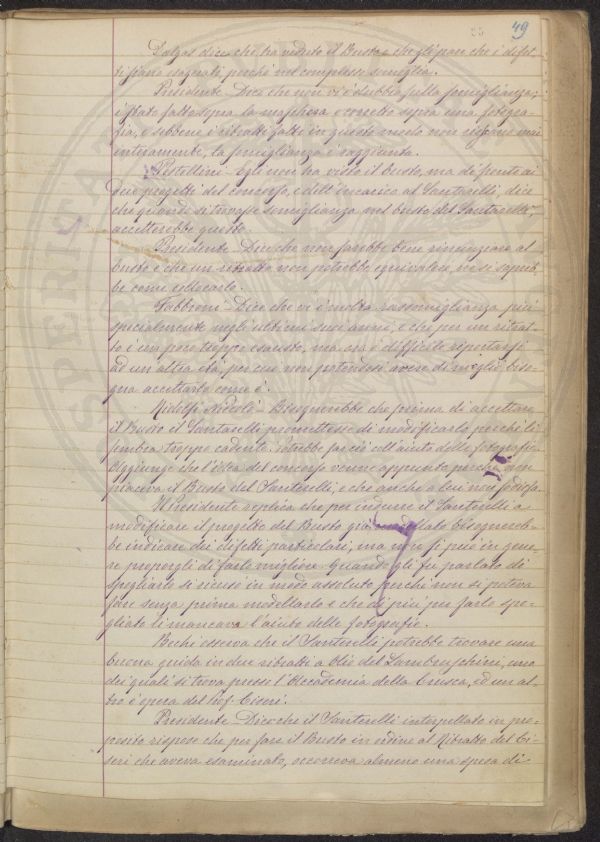 49
Dalgas dice che, ha veduto il Busto e che gli pare che i difet-
ti siano esagerati, perchè nel complesso somiglia.
Presidente Dice che non vi è dubbio sulla somiglianza;
è stato fatto sopra la maschera e corretto sopra una fotogra-
fia, e sebbene i ritratti fatti in questo modo non riescano mai
interamente, la somiglianza è raggiunta.
Pestellini - Egli non ha visto il busto, ma di fronte ai
due progetti del concorso, e dell'incarico al Santarelli, dice
che quando si trovasse somiglianza nel busto del Santarelli,
accetterebbe questo.
Presidente Dice che non sarebbe bene rinunziare al
busto e che un ritratto non potrebbe equivalere, nè si sapreb-
be come collocarlo.
Fabbroni - Dice che vi è molta rassomiglianza più
specialmente negli ultimi suoi anni, e che per un ritrat-
to è un poco troppo esausto, ma ora è difficile riportarsi
ad un'altra età, per cui non potendosi avere di meglio biso-
gna accettarlo come è.
Ridolfi Niccolò - Bisognerebbe che prima di accettare
il Busto il Santarelli promettesse di modificarlo perchè li
sembra troppo cadente. Potrebbe far ciò coll'aiuto delle fotografie.
Aggiunge che l'idea del concorso venne appunto perchè non
piaceva il Busto del Santarelli, e che anche a lui non sodisfa.
Il Presidente replica che per indurre il Santarelli a
modificare il progetto del Busto già modellato bisognereb-
be indicare dei difetti particolari, ma non si può in gene-
re proporgli di farlo migliore. Quando gli fu parlato di
spogliarlo si ricusò in modo assoluto perchè non si poteva
fare senza prima modellarlo e che di più per farlo spo-
gliato li mancava l'aiuto delle fotografie.
Bechi osserva che il Santarelli potrebbe trovare una
buona guida in due ritratti a olio del Lambruschini, uno
dei quali si trova presso l'Accademia della Crusca, ed un al-
tro è opera del Prof. Ciseri.
Presidente Dice che il Santarelli interpellato in pro-
posito rispose che per fare il Busto in ordine al Ritratto del Ci-
seri che aveva esaminato, occorreva almeno una spesa di